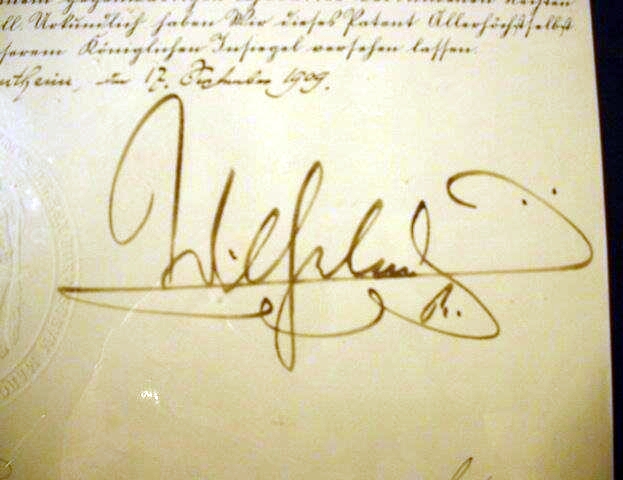 gegenwärtigen
ll. Urkundlich haben Wir dieses Patent Allerhöchstselbst
serem Königlichen Insiegel versehen lassen.
den 17. September 1909.
Wilhelm
R.